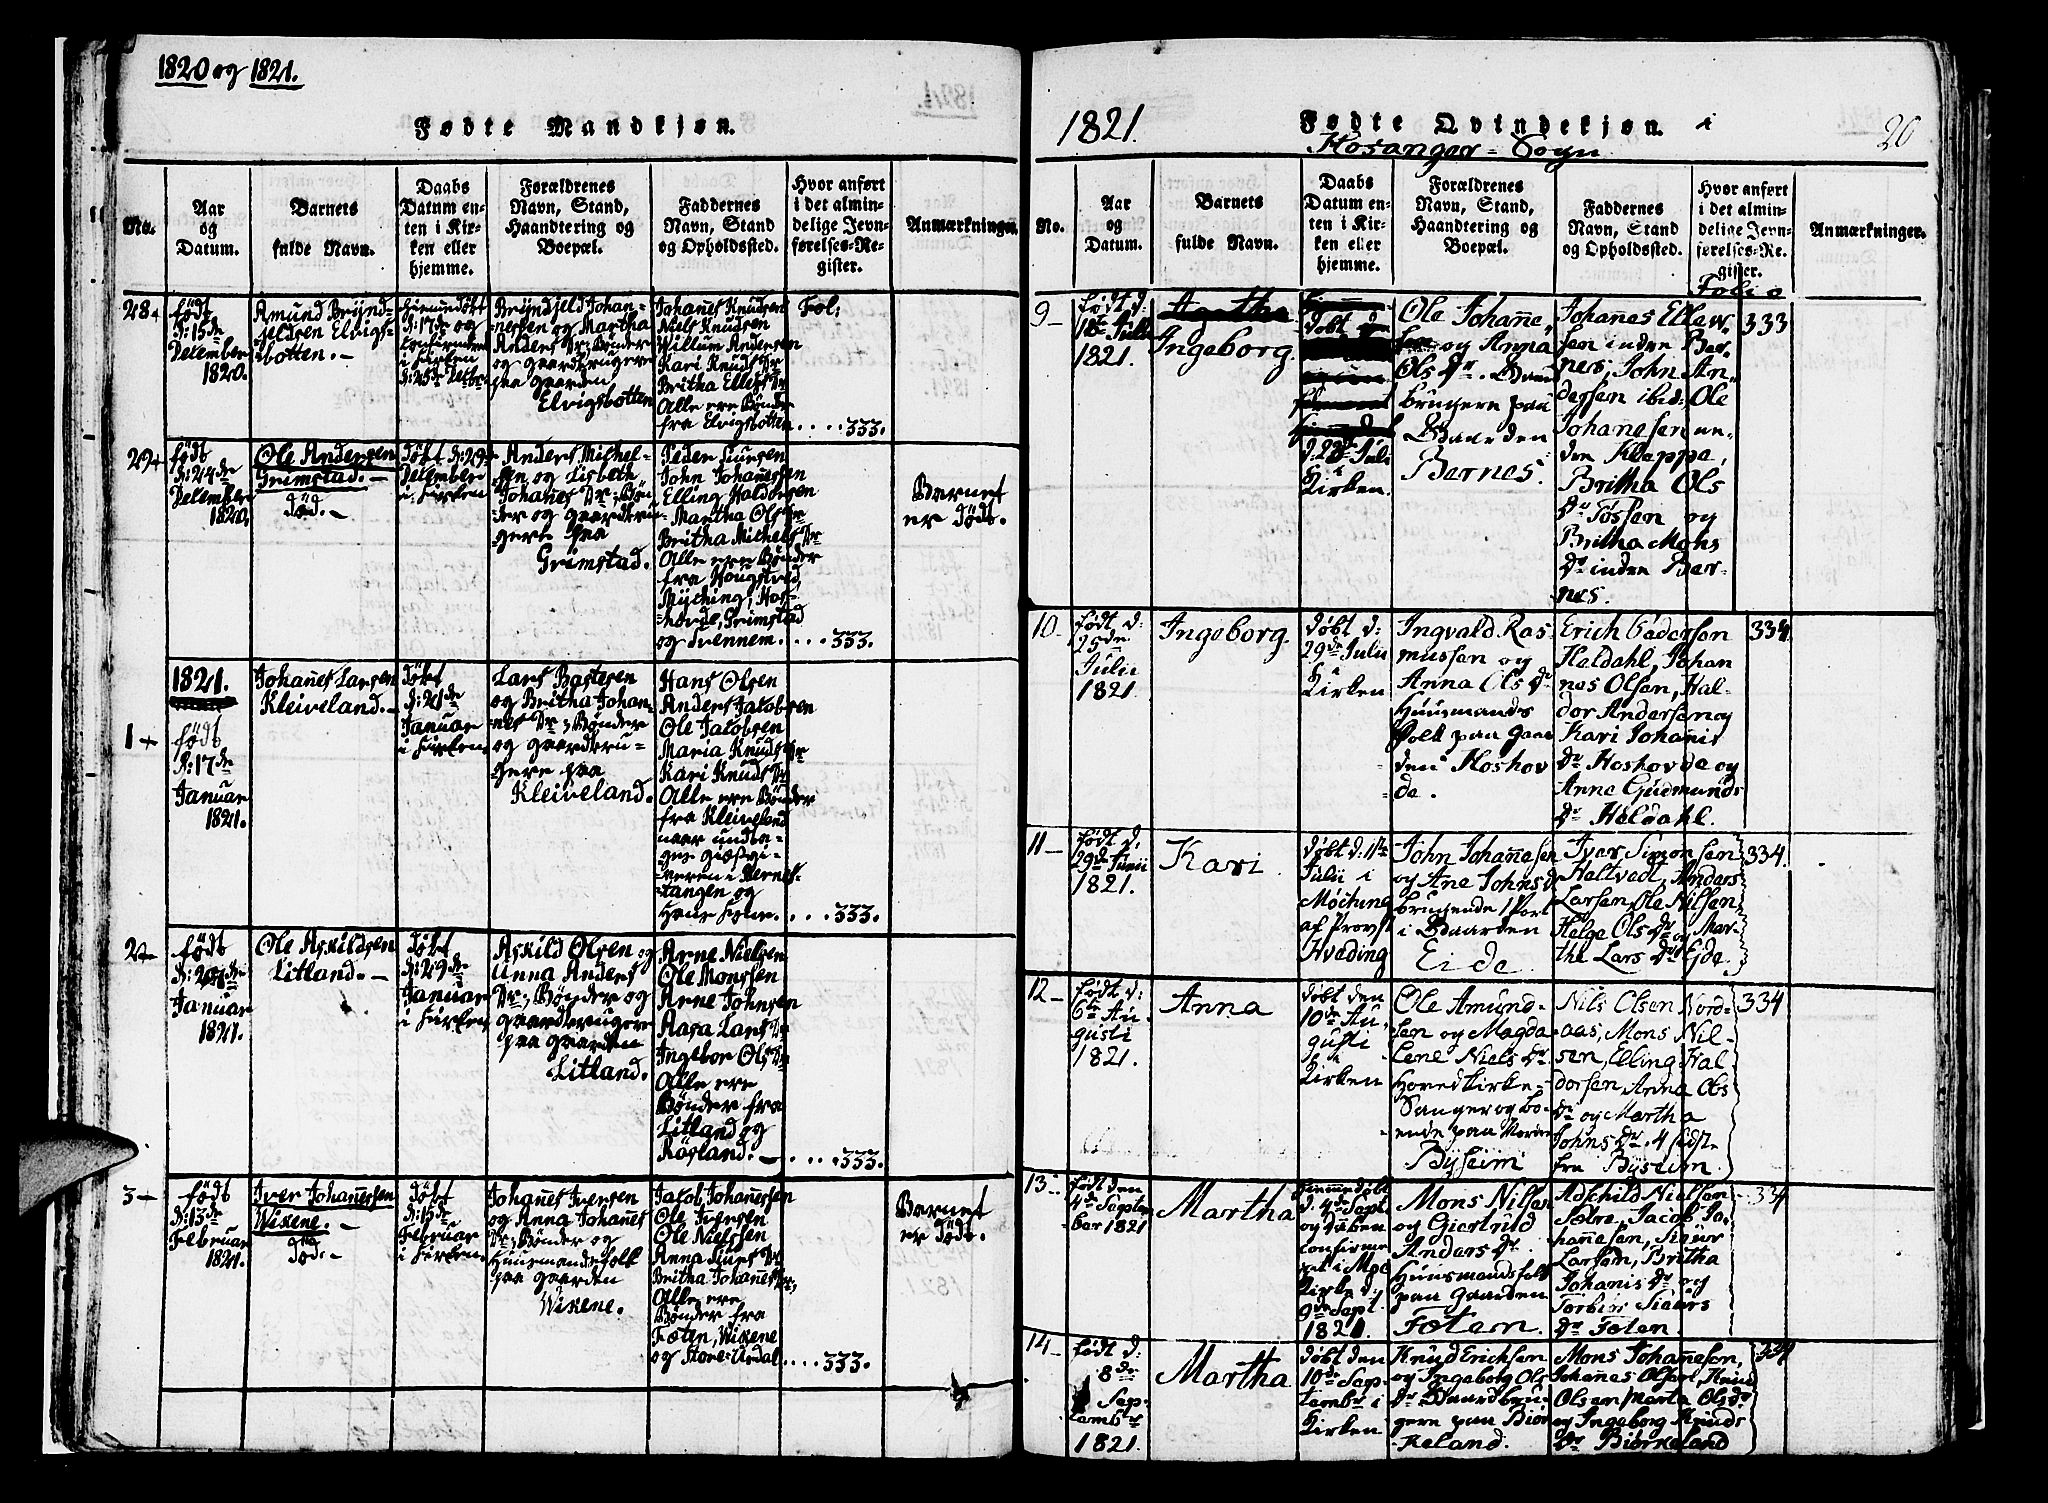 1820 og 1821.
Fødte Mandkjøn.
No.
Aar
og
Datum.
Barnets
fulde Navn.
Daabs
Datum en-
ten i Kir-
ken eller
hjemme.
Forældrenes
Navn, Stand,
Haandtering og
Boepæl.
Faddernes
Navn, Stand
og Opholdssted.
Hvor anført
i det almin-
delige Jevn-
førelses-Re-
gister.
Anmærkninger.
28
født
D: 15de
December
1820.
Amund Brynd-
jeldsen Elvigs-
botten.
hjemmedøbt
D: 17de og
confirmeret
i Kirken
D: 25de Decbr
Bryndjeld Johan-
nessen og Martha
Anders Dr; Bønder
og gaardbrugere
paa gaarden
Elvigsbotten
Johanes Knudsen
Niels Knudsen
Willum Andersen
Kari Knuds Dr
Britha Ellefs Dr
Alle ere Bønder
fra Elvigsbotten
Fol:
333.
29
født
D: 24de
December
1820.
Ole Andersen
Grimstad.
død.
døbt D: 29
December
i Kirken
Anders Michel-
sen og Lisbeth
Johanes Dr; Bøn-
der og gaardbru-
gere paa
Grimstad.
Peder Siursen
John Johanessen
Elling Haldorsen
Martha Ols Dr
Britha Michels Dr
Alle ere Bønder
fra Hougstved,
Myching, Hos-
hovde, Grimstad
og Tvennem.
333.
Barnet
er dødt.
1821.
1
født
D: 17de
Januar
1821.
Johanes Larsen
Kleiveland.
døbt
D: 21de
Januar
i Kirken
Lars Bastesen
og Britha Johan-
nes Dr; Bønder
og gaardbru-
gere paa
Kleiveland.
Hans Olsen
Anders Jacobsen
Ole Jacobsen
Maria Knuds Dr
Kari Knuds Dr
Alle ere Bønder
fra Kleiveland
naar undta-
ges giæstgi-
veren i Bernes-
tangen og
Hans Kone.
333.
2
født
Januar
1821.
Ole Askildsen
Litland.
døbt
D: 29de
Januar
i Kirken
Askild Olsen og
Anna Anders
Dr; Bønder og
gaardbrugere
paa gaarden
Litland.
Arne Nielsen
Ole Monssen
Arne Johnsen
Aasa Lars Dr
Ingebor Ols Dr
Alle ere
Bønder fra
Litland og
Røsland.
333.
3
født
D: 13de
Februar
1821.
Iver Johanessen
Wikene.
død.
døbt
D: 15de
Februar
i Kirken.
Johanes Iversen
og Anna Johanes
Dr; Bønder og
Huusmandsfolk
paa gaarden
Wikene.
Jacob Johanessen
Ole Iversen
Ole Nielssen
Anna Siurs Dr
Britha Johanes Dr;
Alle ere
Bønder fra
Foten, Wikene
og Store-Urdal
333.
Barnet
er dødt.
1821.
Fødte Qvindekjøn. i
Hosanger-Sogn
20
No.
Aar
og
Datum.
Barnets
fulde Navn.
Daabs
Datum en-
ten i Kir-
ken eller
hjemme.
Forældrenes
Navn, Stand,
Haandtering og
Boepæl.
Faddernes
Navn, Stand
og Opholdssted.
Hvor anført
i det almin-
delige Jevn-
førelses-Re-
gister.
Folio
Anmærkninger.
9
født d:
18de Julii
1821.
Agatha
Ingeborg.
døbt
d: 22de Juli
i
Kirken.
Ole Johanne-
sen og Anna
Ols Dr. Gaard
brugere paa
Gaarden
Bernes.
Johanes Ellew-
sen indre Ber-
nes, John An-
dersen ibid: Ole
Johanesen an-
den Kleppe,
Britha Ols
Dr Tossen og
Britha Mons
Dr indre Ber-
nes.
333
10
født d:
25de
Julii
1821.
Ingeborg.
døbt d:
29de Julii
i
Kirken
Ingvald Ras
mussen og
Anna Ols Dr
Huusmands
folk paa Gaar
den Hoshov
de.
Erich Gudersen
Haldahl, Johan
nes Olsen, Hal-
dor Andersen og
Kari Johanis
Dr Hoshovde og
Anne Gudmunds
Dr Haldahl.
334
11
født d,
29de Junii
1821.
Kari
døbt d: 11te
Julii i
Møitung
af Provst
Hveding
John Johannesen
og Ane Johns D
brugende 1 Part
i Gaarden
Eide
Iver Simonsen
Haltvedt, Anders
Larsen, Ole Nilsen
Helge Ols Dr og Mar-
the Lars Dr Eide
334.
12
født d:
6te Au
gusti
1821.
Anna
døbt den
10de Au
gusti
i
Kirken
Ole Amund-
sen og Magda
lene Niels Dr
Hovedkirke-
Sanger og bo-
ende paa Nordre
Byseim
Nils Olsen Nord-
aas, Mons Nil-
sen, Elling Hal-
dorsen Anna Ols
Dr og Martha
Johns Dr. 4 sidste
fra Byseim.
334
13
født den
4de Septem
ber 1821
Martha
hjemmedøbt
d. 4de Sept
og Daaben
confirme
ret i Moe
Kirke d,
9de Sept.
1821.
Mons Nilsen
og Giertrud
Anders Dr.
Huusmandsfolk
paa Gaarden
Fotem.
Adschild Nielsen
Søbre, Jacob Jo-
hannesen, Siur
Larsen, Britha
Johanis Dr og
Torbiør Siurs
Dr Foten
334
14
født d.
8de
Sep-
tembr
1821.
Martha
døbt den
10de Sep-
tembr i
Kirken
Knud Erichsen
og Ingeborg Ols
Dr Gaardbru-
gere paa Biør
keland.
Mons Johannesen,
Johanes Olsen, Knud
Olsen Marta Ols Dr
og Ingeborg Knuds
Dr Biørkeland
334